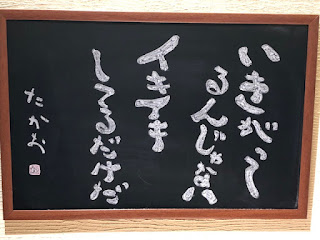 いきがって
るんじゃない
イキを
してるだけだ
たかお